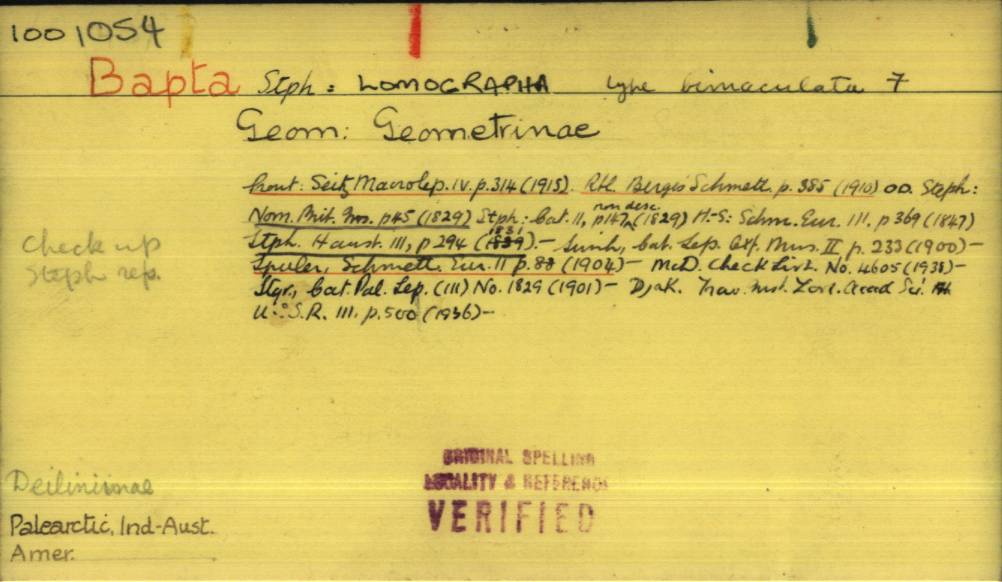 1001054
Bapta Stph: LOMOGRAPHA type bimaculata 7
Geom: Geometrinae
Prout: Seitz Macrolep. IV. p.314 (1915). Rbl. Berges Schmett. p. 385 (1910) OD. Steph:
Nom. Brit. Ins. p45 (1829) Stph: Cat. II, p147, non desc. (1829) H.-S: Schm. Eur. III. p 369 (1847)
Stph. Haust. III, p 294 (1831).— Swinh, Cat. Lep. Oxf. Mus. II p. 233 (1900)—
Spuler, Schmett. Eur. II p.88 (1904)— McD. Check List. No. 4605 (1938)—
Stgr., Cat. Pal. Lep. (III) No. 1829 (1901)— Djak. Trav. Inst. Zool. Acad Sci.
U.S.S.R. III. p.500 (1936)—
Check up
Steph rep.
ORIGINAL SPELLING
LOCALITY & REFERENCE
VERIFIED
Deiliniinae
Palearctic, Ind-Aust.
Amer.